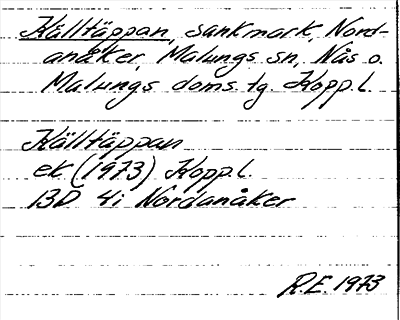 Källtäppan, sankmark, Nord-
anåker, Malungs sn, Nås o.
Malungs doms.tg. Kopp.l.
Källtäppan
ek (1973) Kopp.l.
13D 4i Nordanåker
R.E. 1973